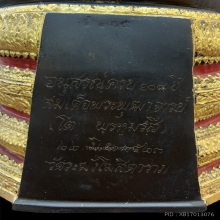 อนุสรณ์ครบ ๑๐๘ ปี
สมเด็จพระพุฒาจารย์
(โต พรหมรังสี)
๒๒ ๒๕๒๓
วัดระฆังโฆสิตาราม
PIC : XB17013076